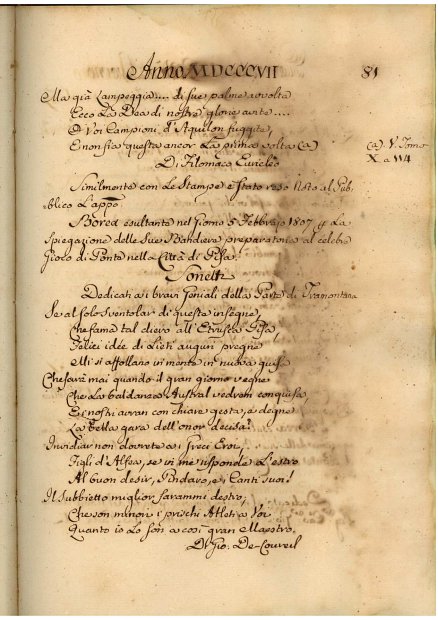 Anno MDCCCVII
81
Ma già Lampeggia.... di sue palme avvolta
Ecco La Dea di nostre glorie avite....
O Voi Campioni d'Aquilon fuggite,
E non sia questa ancor La prima volta (a)
(a) V. Tomo
X. a 114
Di Filomaco Euricleo
Similmente con Le Stampe è stato reso Noto al Pub-
blico L'appo:
Borea esultante nel Giorno 5 Febbrajo 1807 p La
Spiegazione delle Sue Bandiere preparatorio al celebre
Gioco di Ponte nella Città di Pisa.
Sonetto
Dedicati ai bravi Geniali della Parte di Tramontana
Se al solo sventolar di queste insegne,
Che fama tal diero all'Etrusca Pisa,
Felici idee di Lieti auguri pregne
Mi si affollano in mente in nuova guisa
Che sarà mai quando il gran giorno vegne
Che La baldanza Austral vedrem conquisa,
E i nostri avran con chiare gesta, e degne
La bella gara dell'onor decisa?
Invidiar non dovrete ai Greci Eroi,
Figli d'Alfea, se in me risponde L'estro
Al buon desir, Pindaro, e i Canti suoi!
Il Subbietto miglior saranmi destro,
Che son minori i prischi Atleti a Voi
Quanto io Lo son a così gran Maestro.
Di Gio. De-Coureil